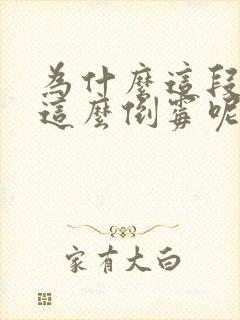 為什麼這段
這麼倒霉呢
家有大白